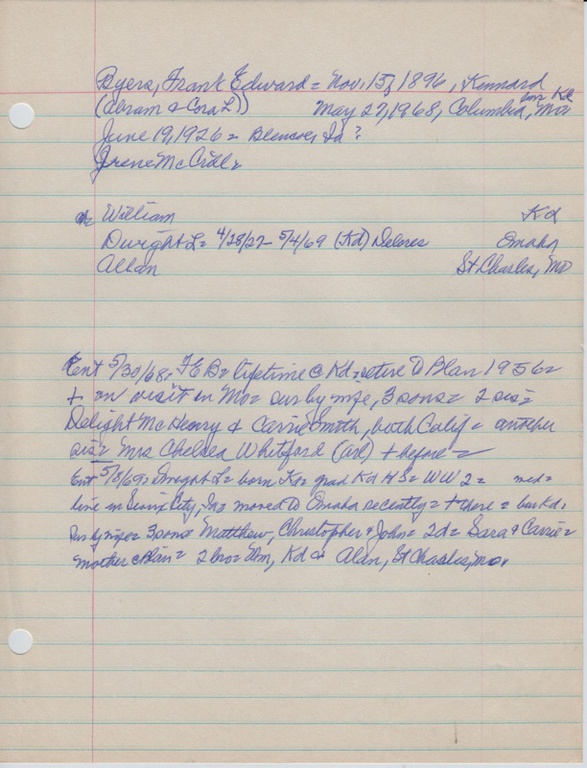 Byers, Frank Edward = Nov. 15, 1896, Kennard
(Abram & Cora L)) May 27, 1968, Columbia, Mo
bur Kd
June 19, 1926 = Ia?
Irene McCrdle
ch William Kd
Dwight L = 4/28/27 - 5/4/69 (Kd) Delores Omaha
Allan St Charles, MO
Ent 5/30/68, FEB = lifetime @ Kd = retire to Blair 1956 =
+ on visit in Mo = sur by wife, 3 sons = 2 sis =
Delight McHenry & Carrie Smith, both Calif = another
sis = Mrs Chelsea Whitford + before =
Ent 5/8/69 = Dwight L = born Kd = grad Kd HS = WW 2 =
live in Sioux City, Ia = moved to Omaha recently = + there = bur Kd =
sur by wife = 3 sons = Matthew, Christopher & John = 2d = Sara & Carrie =
mother @ Blair = 2 bro = Wm, Kd & Alan, St Charles, Mo.